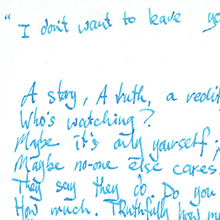 " I don't want to leave
A story, A truth, a
Who's watching?
Maybe it's only yourself
Maybe no-one else cares.
They say they do. Do you
How much. Truthfully how